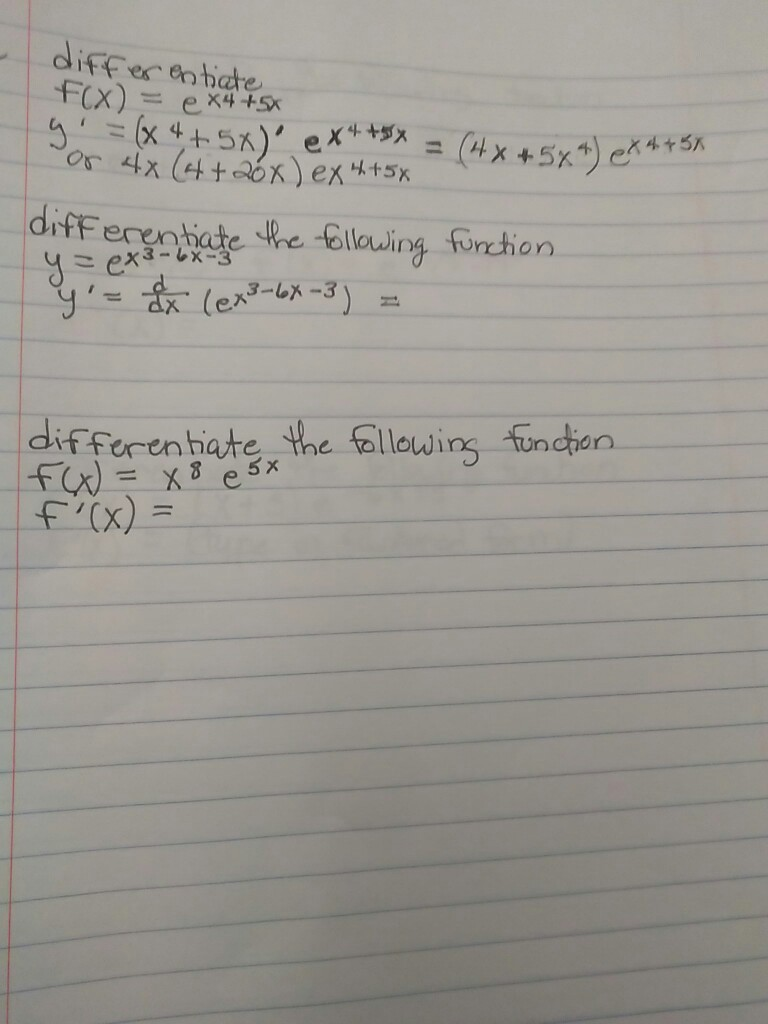 differentiate
f(x) = e x4+5x
y' = (x 4 + 5x)' e x4+5x = (4x + 5x4) e x4+5x
or 4x (4+20x) ex4+5x
differentiate the following function
y = ex3-6x-3
y' = d/dx (ex3-6x-3) =
differentiate the following function
f(x) = x8 e5x
f'(x) =